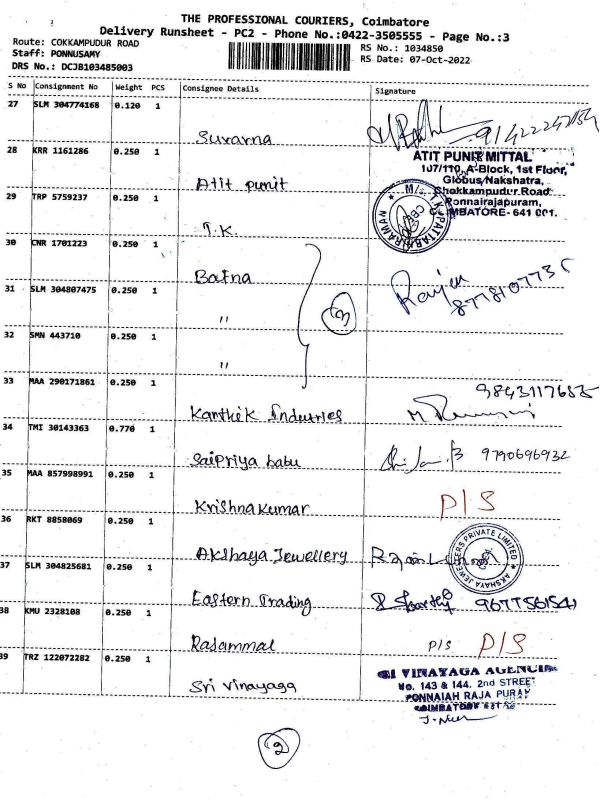 THE PROFESSIONAL COURIERS, Coimbatore
Delivery Runsheet - PC2 - Phone No.:0422-3505555 - Page No.:3
Route: COKKAMPUDUR ROAD
Staff: PONNUSAMY
DRS No.: DCJB103485003
RS No.: 1034850
RS Date: 07-Oct-2022
S No Consignment No Weight PCS Consignee Details Signature
27 SLM 304774168 0.120 1
Suvarna
28 KRR 1161286 0.250 1
Atit punit
ATIT PUNIT MITTAL
107/110, A-Block, 1st Floor,
Globus Nakshatra,
Chokkampudur Road
Ponnairajapuram,
COIMBATORE- 641 001.
29 TRP 5759237 0.250 1
T.K
M/s. T.K. PATTABHIRAMAN
CBE
30 CNR 1701223 0.250 1
Bafna
31 SLM 304807475 0.250 1
"
3
8778107735
32 SMN 443710 0.250 1
"
33 MAA 290171861 0.250 1
Karthik Industries
9843117685
34 TMI 30143363 0.770 1
Saipriya babu
9790696932
35 MAA 857998991 0.250 1
Krishnakumar
P/S
36 RKT 8858069 0.250 1
Akshaya Jewellery
AKSHAYA JEWELLERS PRIVATE LIMITED
37 SLM 304825681 0.250 1
Eastern Trading
38 KMU 2328108 0.250 1
Radammal
P/S P/S
39 TRZ 122072282 0.250 1
Sri Vinayaga
SRI VINAYAGA AGENCIES
No. 143 & 144. 2nd STREET
PONNAIAH RAJA PURAM
2